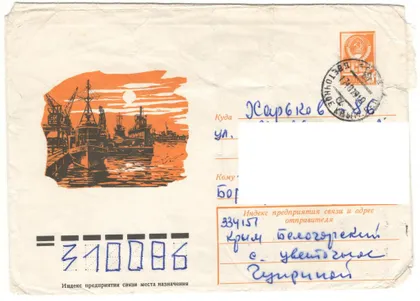 Куда Харьков 86
ул.
Кому
Бор
Индекс предприятия связи и адрес
отправителя
334151
Крым Белогорский
с. Цветочное
310086
Индекс предприятия связи места назначения